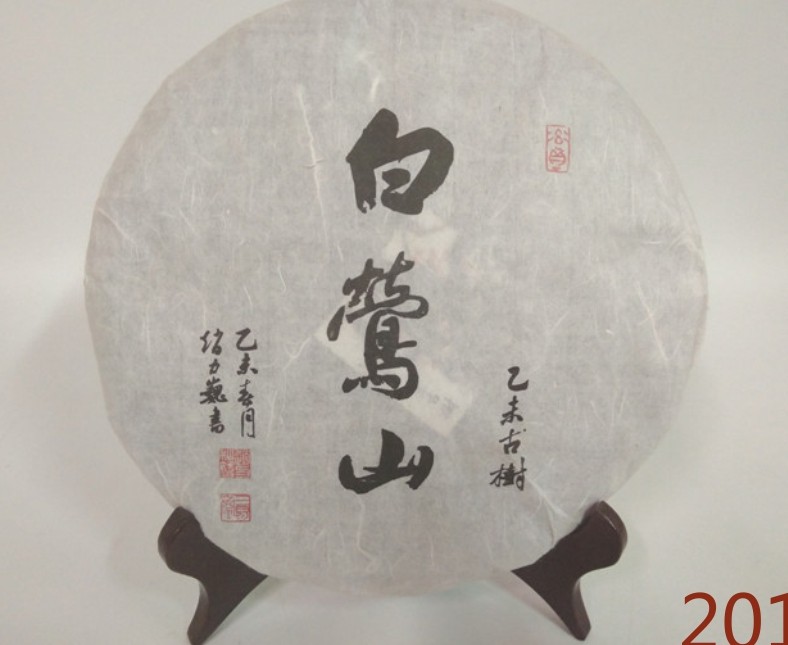 白鶯山
乙未古樹
乙未春月
力巍書
201